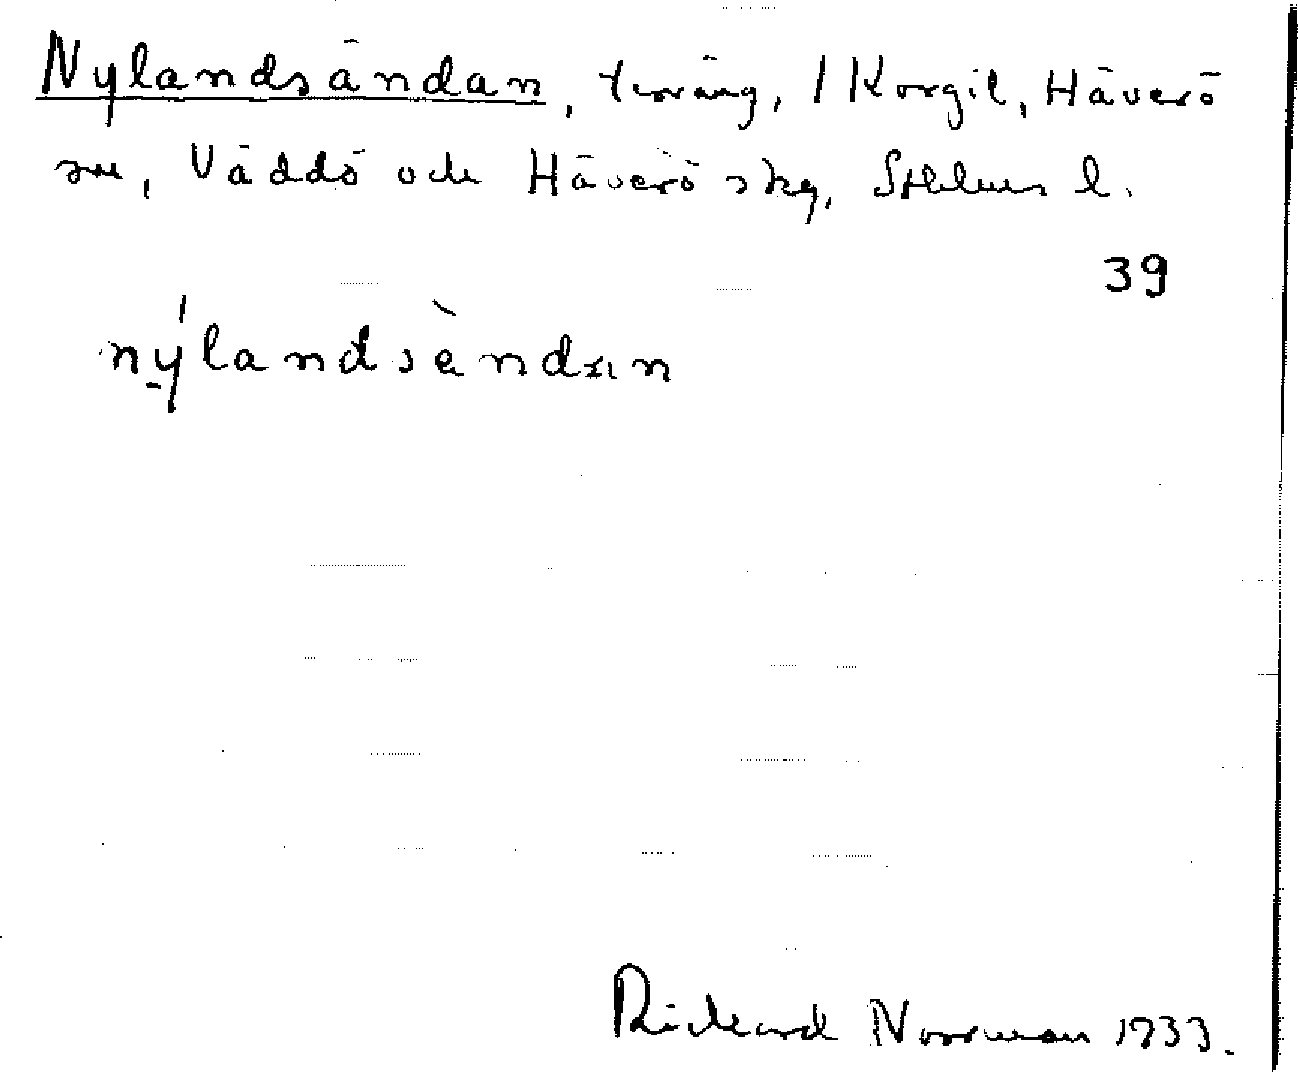 Nylandsändan, teväng, 1 Korgil, Häverö
sn, Väddö och Häverö skg, Sthlms l.
39
nýlandsèndan
Rickard Norrman 1933.